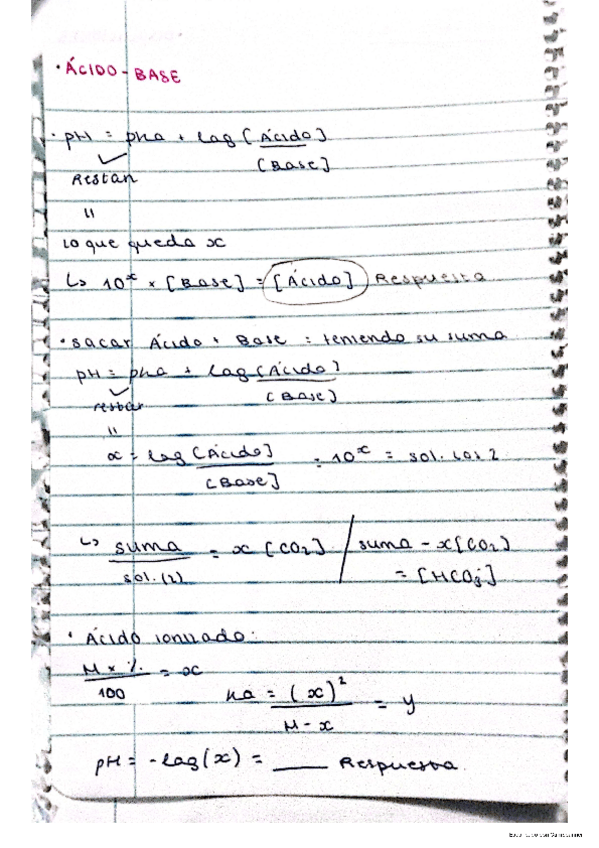 · ÁCIDO - BASE
· pH = pKa + log [Ácido]
[Base]
Restan
=
lo que queda x
↳ 10^x × [Base] = [Ácido] Respuesta
· sacar Ácido + Base = teniendo su suma
pH = pKa + log [Ácido]
[Base]
restar
=
x = log [Ácido] = 10^x = sol. Los 2
[Base]
↳ suma = x [CO2] / suma - x[CO2]
sol. (2) = [HCO3-]
· Ácido ionizado:
M × % = x
100
Ka = (x)^2 = y
M - x
pH = -log(x) = ___ Respuesta.